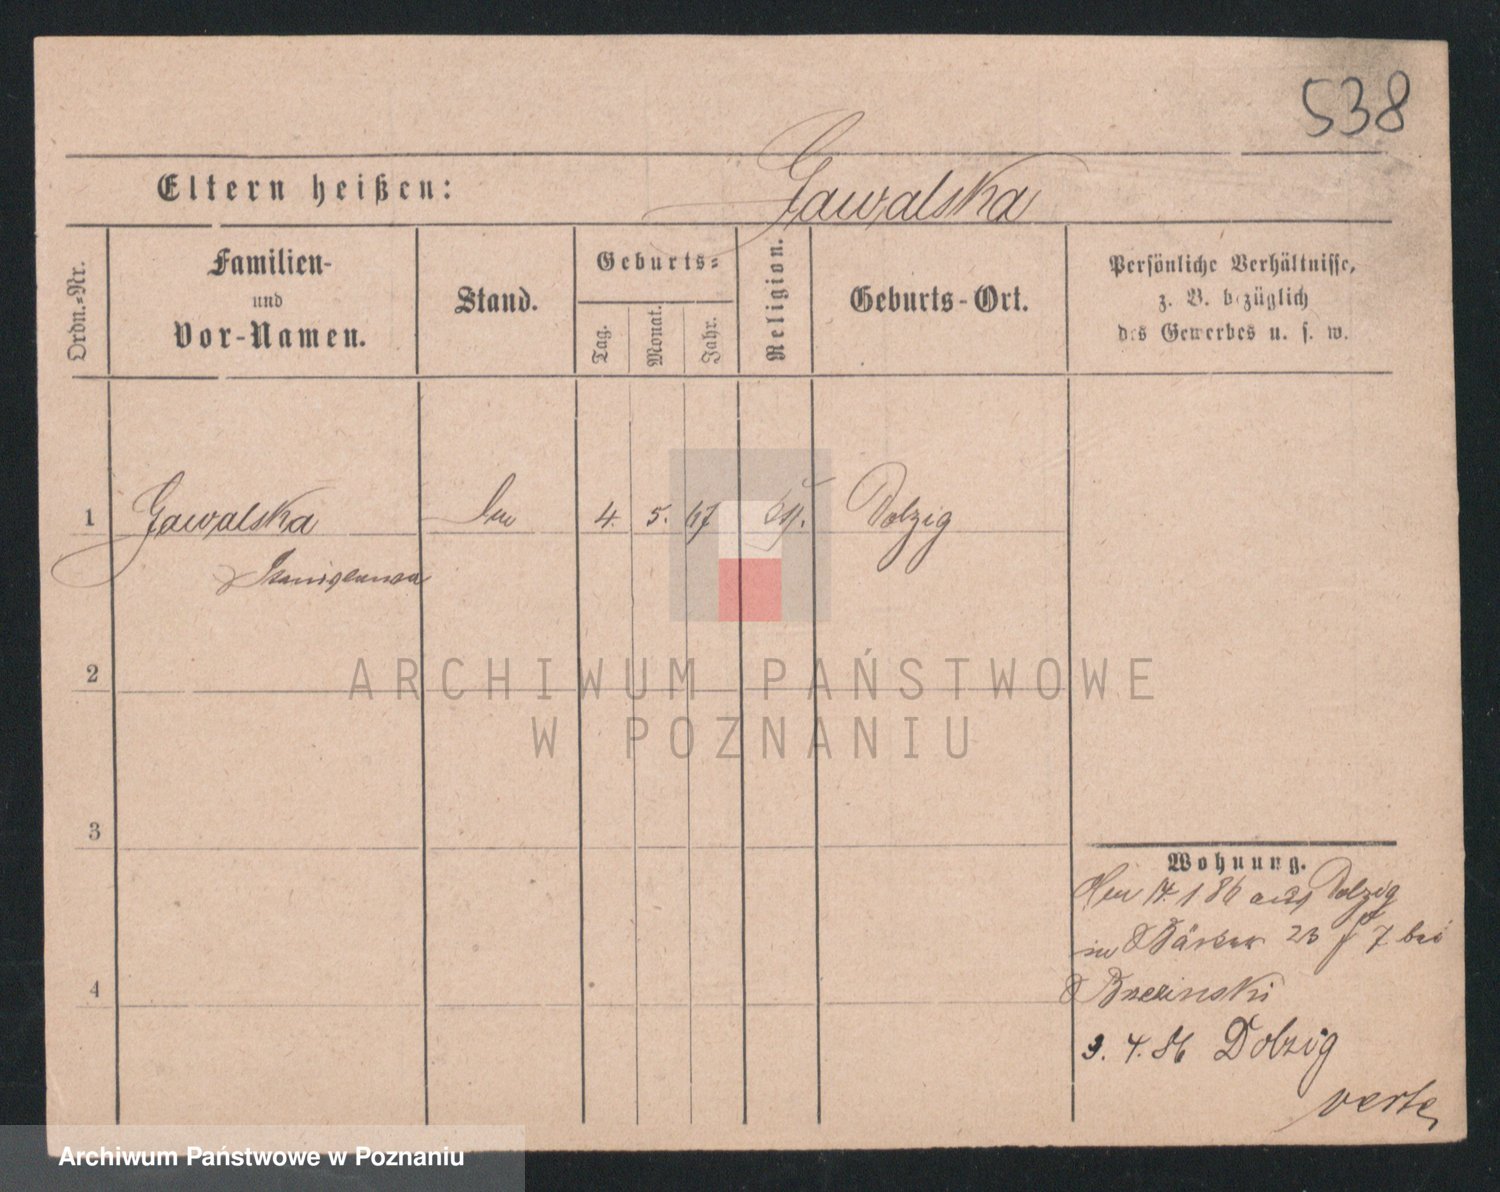 538
Eltern heißen: Gawalska
Ordn.-Nr. Familien- und Vor-Namen. Stand. Geburts- Tag. Monat. Jahr. Religion. Geburts-Ort. Persönliche Verhältnisse, z. B. bezüglich des Gewerbes u. s. w.
1 Gawalska 4. 5. 67 Dolzig
Stanislawa
2
ARCHIWUM PAŃSTWOWE
W POZNANIU
3
Wohnung.
14. 1 86 aus Dolzig
in 23 7 bei
Brezinski
4
3. 4. 86 Dolzig
verte
Archiwum Państwowe w Poznaniu